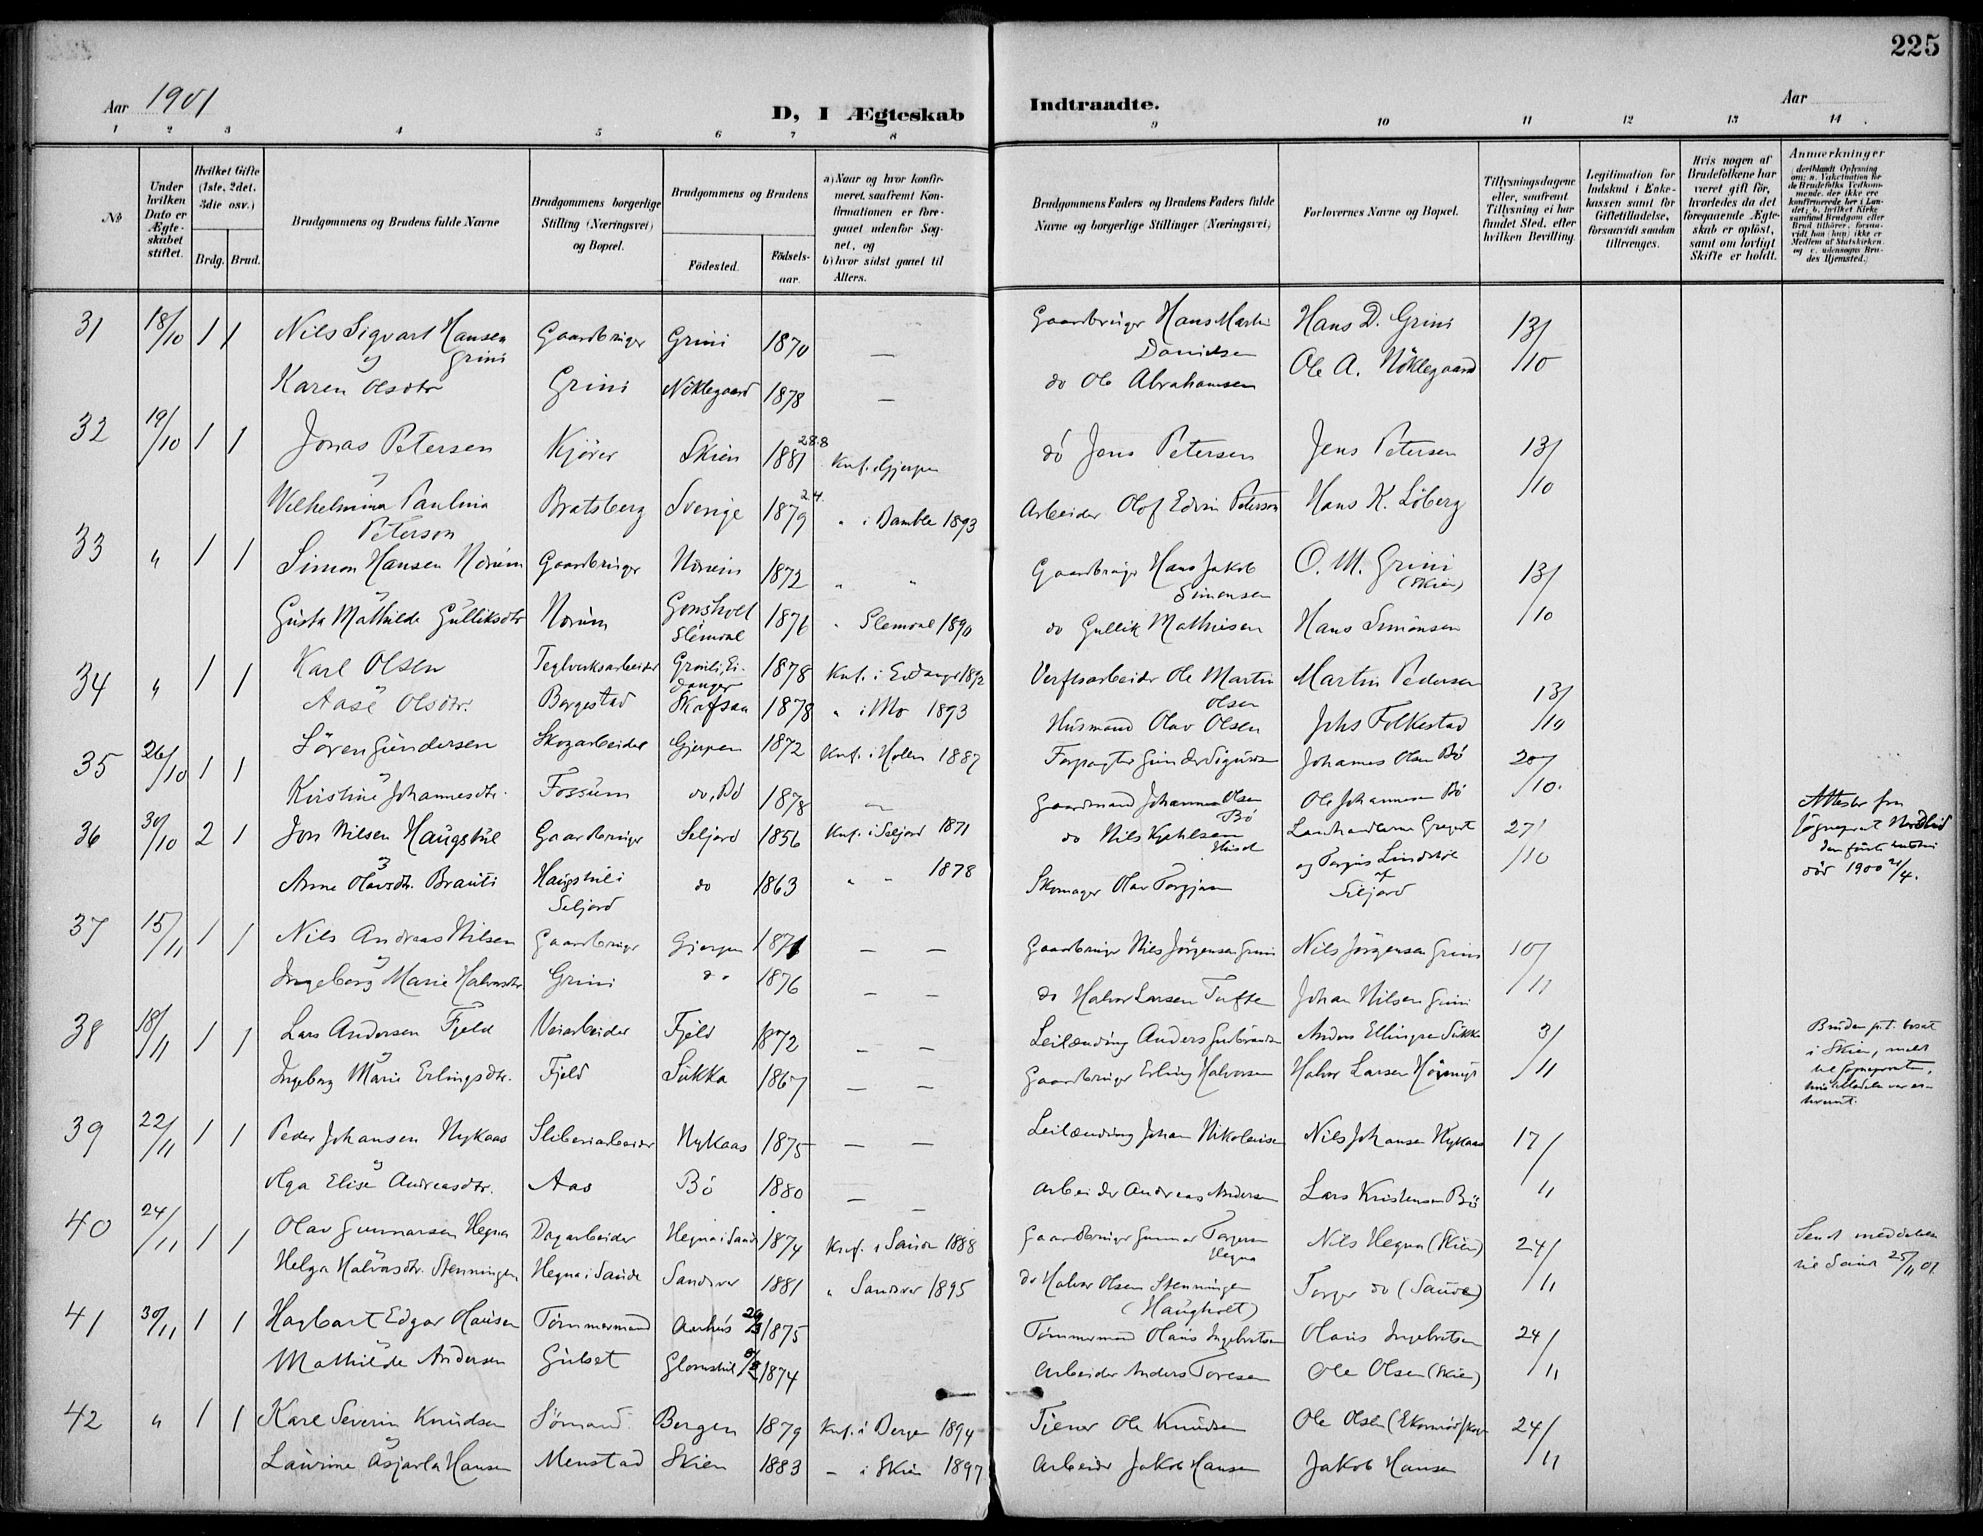 225
Aar 1901
D, I Ægteskab Indtraadte.
Aar
1 2 3 4 5 6 7 8 9 10 11 12 13 14
№
Under hvilken Dato er Ægteskabet stiftet.
Hvilket Gifte (1ste, 2det, 3die osv.)
Brdg. Brud.
Brudgommens og Brudens fulde Navne
Brudgommens borgerlige Stilling (Næringsvei) og Bopæl.
Brudgommens og Brudens
Födested. Födsels-aar.
a) Naar og hvor konfirmeret, saafremt Konfirmationen er foregaaet udenfor Sognet, og
b) hvor sidst gaaet til Alters.
Brudgommens Faders og Brudens Faders fulde Navne og borgerlige Stillinger (Næringsvei)
Forlovernes Navne og Bopæl.
Tillysningsdagene eller, saafremt Tillysning ei har fundet Sted, efter hvilken Bevilling.
Legitimation for Indskud i Enkekassen samt for Giftetilladelse, forsaavidt saadan tiltrænges.
Hvis nogen af Brudefolkene har været gift för, hvorledes da det foregaaende Ægteskab er oplöst, samt om lovligt Skifte er holdt.
Anmærkninger
(deriblandt Oplysning om: a. Vakcination for de Brudefolks Vedkommende, der ikke ere konfirmerede her i Landet; b. hvilket Kirkesamfund Brudgom eller Brud tilhörer, forsaavidt han (hun) ikke er Medlem af Statskirken, og c. udensogns Brudes Hjemsted.)
31 18/10 1 1 Nils Sigvart Hansen Grini Gaardbruger Grini 1870 — Gaardbruger Hans Martin Davidsen Hans D. Grini 13/10
og
Karen Olsdtr Grini Nöklegaard 1878 — do Ole Abrahamsen Ole A. Nöklegaard
32 19/10 1 1 Jonas Petersen Kjörer Skien 1881 28.8 Knf. i Gjerpen do Jens Petersen Jens Petersen 13/10
Vilhelmina Paulina Peterson Bratsberg Sverige 1879 2.4. " i Bamble 1893 Arbeider Olof Edvin Peterson Hans K. Löberg
33 " 1 1 Simon Hansen Norum Gaardbruger Norum 1872 " " Gaardbruger Hans Jakob Simonsen O. M. Grini (Skien) 13/10
Gusta Mathilde Gulliksdtr Norum Gonsholt Slemdal 1876 " Slemdal 1890 do Gullik Mathisen Hans Simonsen
34 " 1 1 Karl Olsen Teglverksarbeider Grönli, Eidanger 1878 Knf. i Eidanger 1892 Verftsarbeider Ole Martin Olsen Martin Pedersen 13/10
Aase Olsdtr. Borgestad Skafsaa 1878 " i Mo 1893 Husmand Olav Olsen Johs Folkestad
35 26/10 1 1 Sören Gundersen Skogarbeider Gjerpen 1872 Knf. i Holen 1887 Forpagter Gunder Sigurdsen Johannes Olsen Bö 20/10
Kirstine Johannesdtr. Fossum do, Bö 1878 — Gaardmand Johannes Olsen Bö Ole Johannesen Bö
36 30/10 2 1 Jon Nilsen Haugstul Gaardbruger Seljord 1856 Knf. i Seljord 1871 do Nils Kjetilsen 27/10
og
Anne Olavsdtr. Brauti Haugstul i Seljord do 1863 " " 1878 Skomager Olav Torgjusen og Torgius Lindstöl af Seljord
Attester fra Sogneprest den förste död 1900 21/4.
37 15/11 1 1 Nils Andreas Nilsen Gaardbruger Gjerpen 1871 — — Gaardbruger Nils Jörgensen Grini Nils Jörgensen Grini 10/11
og
Ingeborg Marie Halvorsdtr Grini do 1876 — — do Halvor Larsen Tufte Johan Nilsen Grini
38 18/11 1 1 Lars Andersen Fjeld Veiarbeider Fjeld 1872 — — Leilænding Anders Gulbrandsen Anders Ellingsen Sukke 3/11
Ingeborg Marie Erlingsdtr. Fjeld Sukka 1867 — — Gaardbruger Erling Halvorsen Halvor Larsen
Bruden p.t. bosat i Skien, meldt til Sognepresten,
39 22/11 1 1 Peder Johansen Nykaas Sliberiarbeider Nykaas 1875 — — Leilænding Johan Nikolaisen Nils Johansen Nykaas 17/11
og
Olga Elise Andreasdtr. Aas Bö 1880 — — Arbeider Andreas Andersen Lars Kristensen Bö
40 24/11 1 1 Olav Gunnarsen Hegna Dagarbeider Hegna i Saude 1874 Knf. i Saude 1888 Gaardbruger Gunnar Torgersen Hegna Nils Hegna (Skien) 24/11
Helga Halvorsdtr. Stenningen Hegna i Saude Sandsver 1881 " Sandsver 1895 do Halvor Olsen Stenningen (Haugholt) Torger do (Saude)
Sendt meddelelse til Saude 25/11 01.
41 30/11 1 1 Hagbart Edgar Olausen Tömmermand Aarhus 1875 Tömmermand Olaus Ingebretsen Olaus Ingebretsen 24/11
Mathilde Andersen Gulset 1874 Arbeider Anders Toresen Ole Olsen (Skien)
42 " 1 1 Karl Severin Knudsen Sömand Bergen 1879 Knf. i Bergen 1894 Tjener Ole Knudsen Ole Olsen 24/11
og
Laurine Asjarla Hansen Menstad Skien 1883 — i Skien 1897 Arbeider Jakob Hansen Jakob Hansen